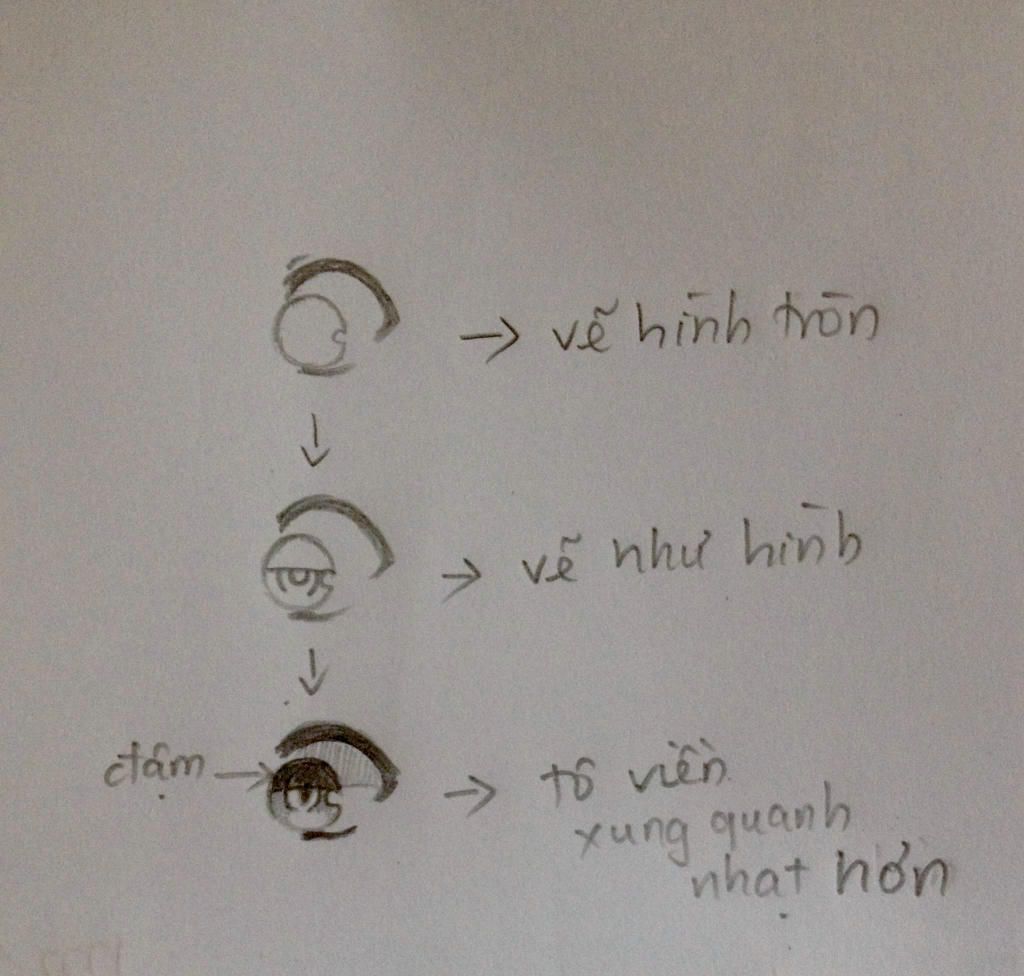 → vẽ hình tròn
→ vẽ như hình
đậm → → tô viền
xung quanh
nhạt hơn